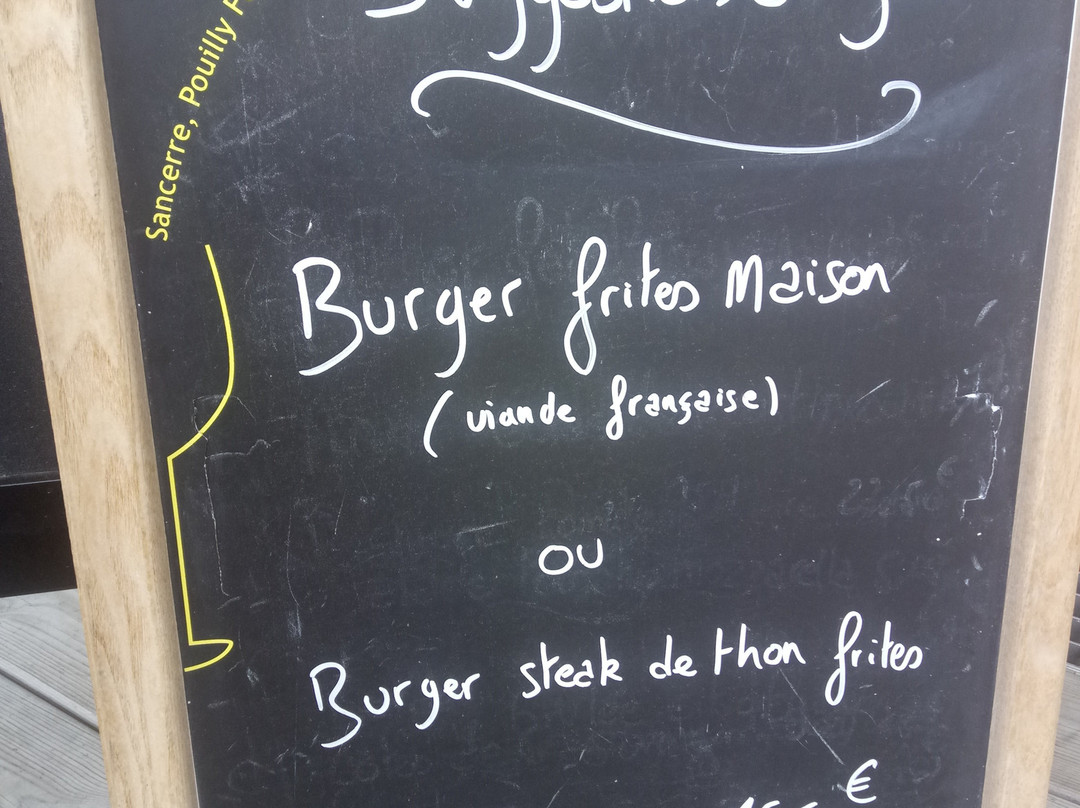 Sancerre, Pouilly
Burger frites Maison
(viande française)
ou
Burger steak de thon frites
€